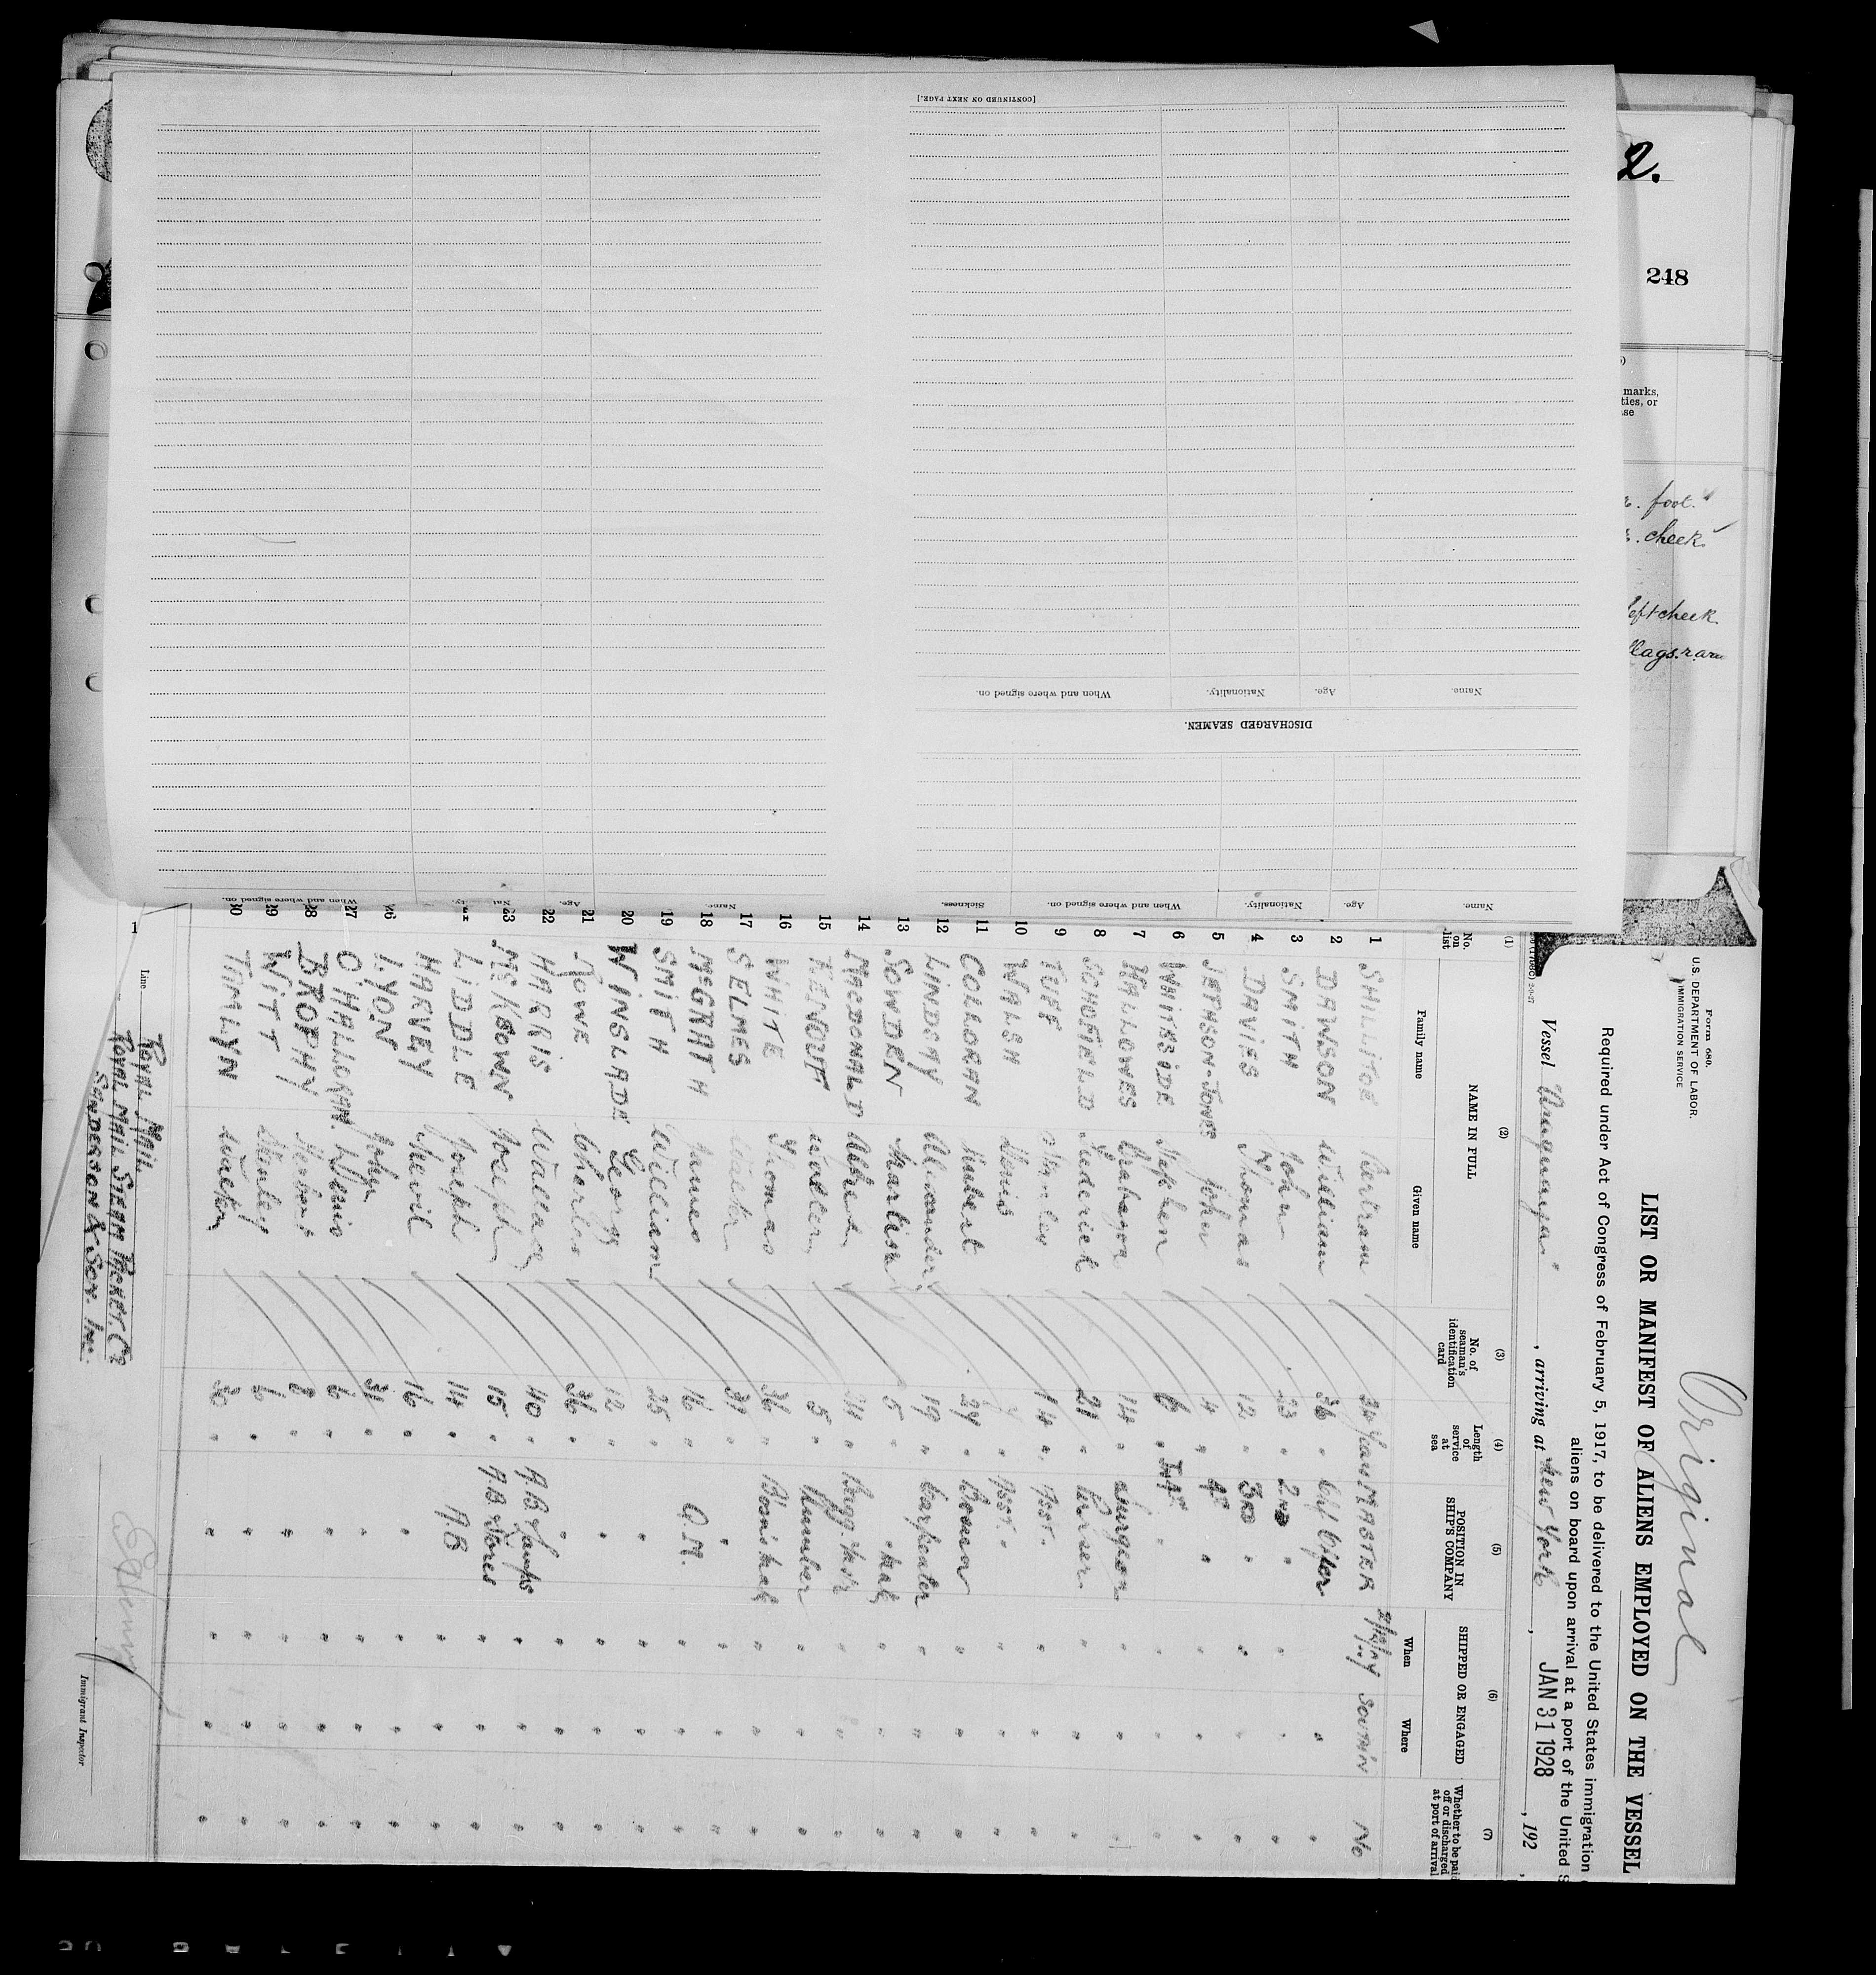 [CONTINUED ON NEXT PAGE.]
Name. Age. Nationality. When and where signed on.
DISCHARGED SEAMEN.
Name. Age. Nationality. When and where signed on. Sickness. Name. Age. When and where signed on.
2.
248
marks,
ties, or
foot.
cheek
left cheek
flags. r. arm
Original
Form 680.
U.S. DEPARTMENT OF LABOR
IMMIGRATION SERVICE
LIST OR MANIFEST OF ALIENS EMPLOYED ON THE VESSEL
Required under Act of Congress of February 5, 1917, to be delivered to the United States immigration
aliens on board upon arrival at a port of the United S
Vessel "Araguaya" , arriving at New York , JAN 31 1928 , 192 ,
(1) (2) (3) (4) (5) (6) (7)
No. on list NAME IN FULL Family name Given name No. of seaman's identification card Length of service at sea POSITION IN SHIP'S COMPANY SHIPPED OR ENGAGED When Where Whether to be paid off or discharged at port of arrival
1 SHILLITOE Bertram 34 Years MASTER SOUTH'N No
2 DAWSON William 36 " Chf Officer " " "
3 SMITH John 23 " 2nd " " " "
4 DAVIES Thomas 12 " 3rd " " " "
5 JETHSON-JONES John 4 " 4th " " " "
6 WHITESIDE Stephen 6 " " " " "
7 HALLOWES Brabazon 14 " Surgeon " " "
8 SCHOFIELD Frederick 21 " Purser " " "
9 TUFF Stanley 14 " Asst. " " "
10 WALSH Denis " Asst. " " " "
11 COLLORAN Hubert 29 " Bosun " " "
12 LINDSAY Alexander 19 " Carpenter " " "
13 SOWDEN Martin 5 " " Mate " " "
14 MACDONALD Alfred " Bagg Mstr " " "
15 RENOUF Walter 5 " Plumber " " "
16 WHITE Thomas 36 " Bosn's Mate " " "
17 SELMES Walter 31 " " " " "
18 McGRATH James 16 " Q.M. " " "
19 SMITH William 25 " " " " "
20 WINSLADE George 12 " " " " "
21 ROWE Charles 36 " " " " "
22 HARRIS Wallace 40 " A.B. Lamps " " "
23 McKEOWN Joseph 15 " A.B. Stores " " "
LIDDLE Joseph 14 " A.B " " "
HARVEY 16 " " " " "
26 LYON John 31 " " " " "
27 O'HALLORAN Denis 6 " " " " "
28 BROPHY Herbert " " " " "
29 WITT Stanley 6 " " " " "
30 TAMLYN 30 " " " " "
1
Line ROYAL MAIL
ROYAL MAIL STEAM PACKET Co
SANDERSON & SON. INC.
Immigrant Inspector